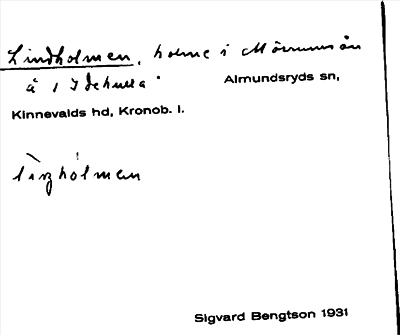 Lindholmen, holme i Mörrumsån
å 1 Idehulta Almundsryds sn,
Kinnevalds hd, Kronob. l.
holmen
Sigvard Bengtson 1931